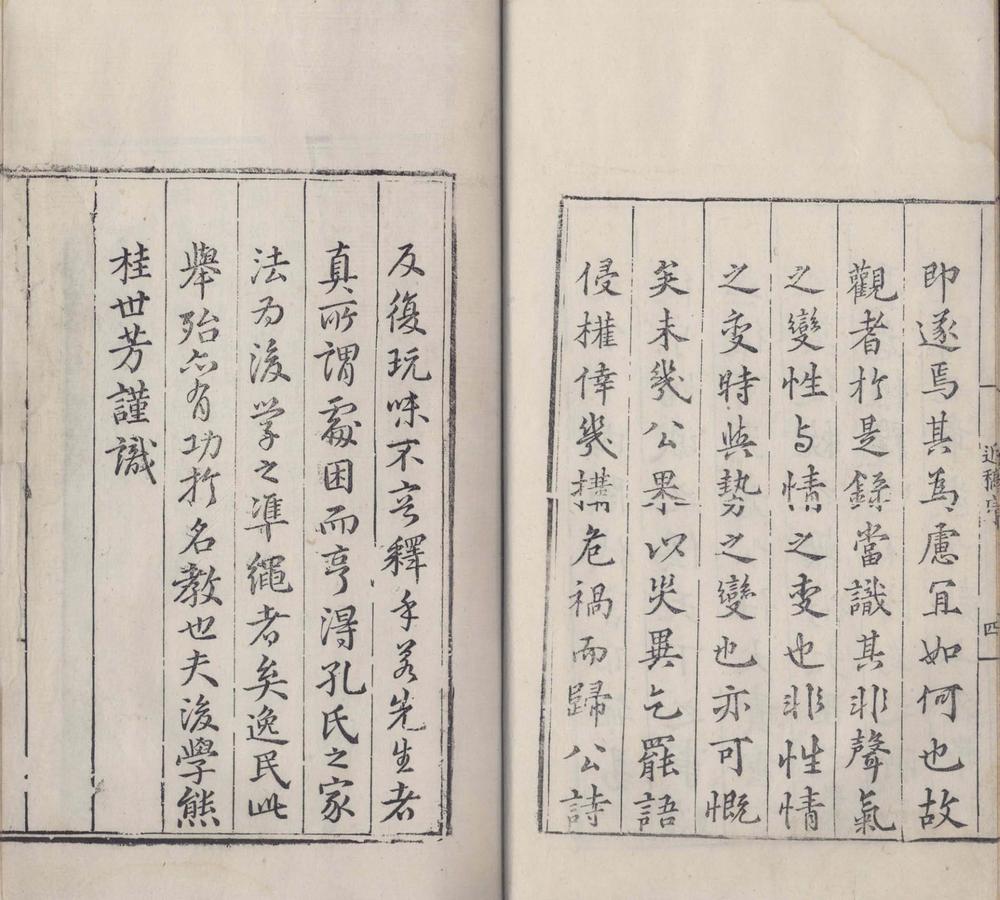 即遂焉其為慮宜如何也故
觀者於是録當識其非聲氣
之變性与情之变也非性情
之变時與勢之變也亦可慨
矣未幾公果以災異乞罷語
侵權倖幾搆危禍而歸公詩
四
反復玩味不忍釋手若先生者
真所謂處困而亨得孔氏之家
法为後学之準繩者矣逸民此
舉殆亦有功於名教也夫後學熊
桂世芳謹識